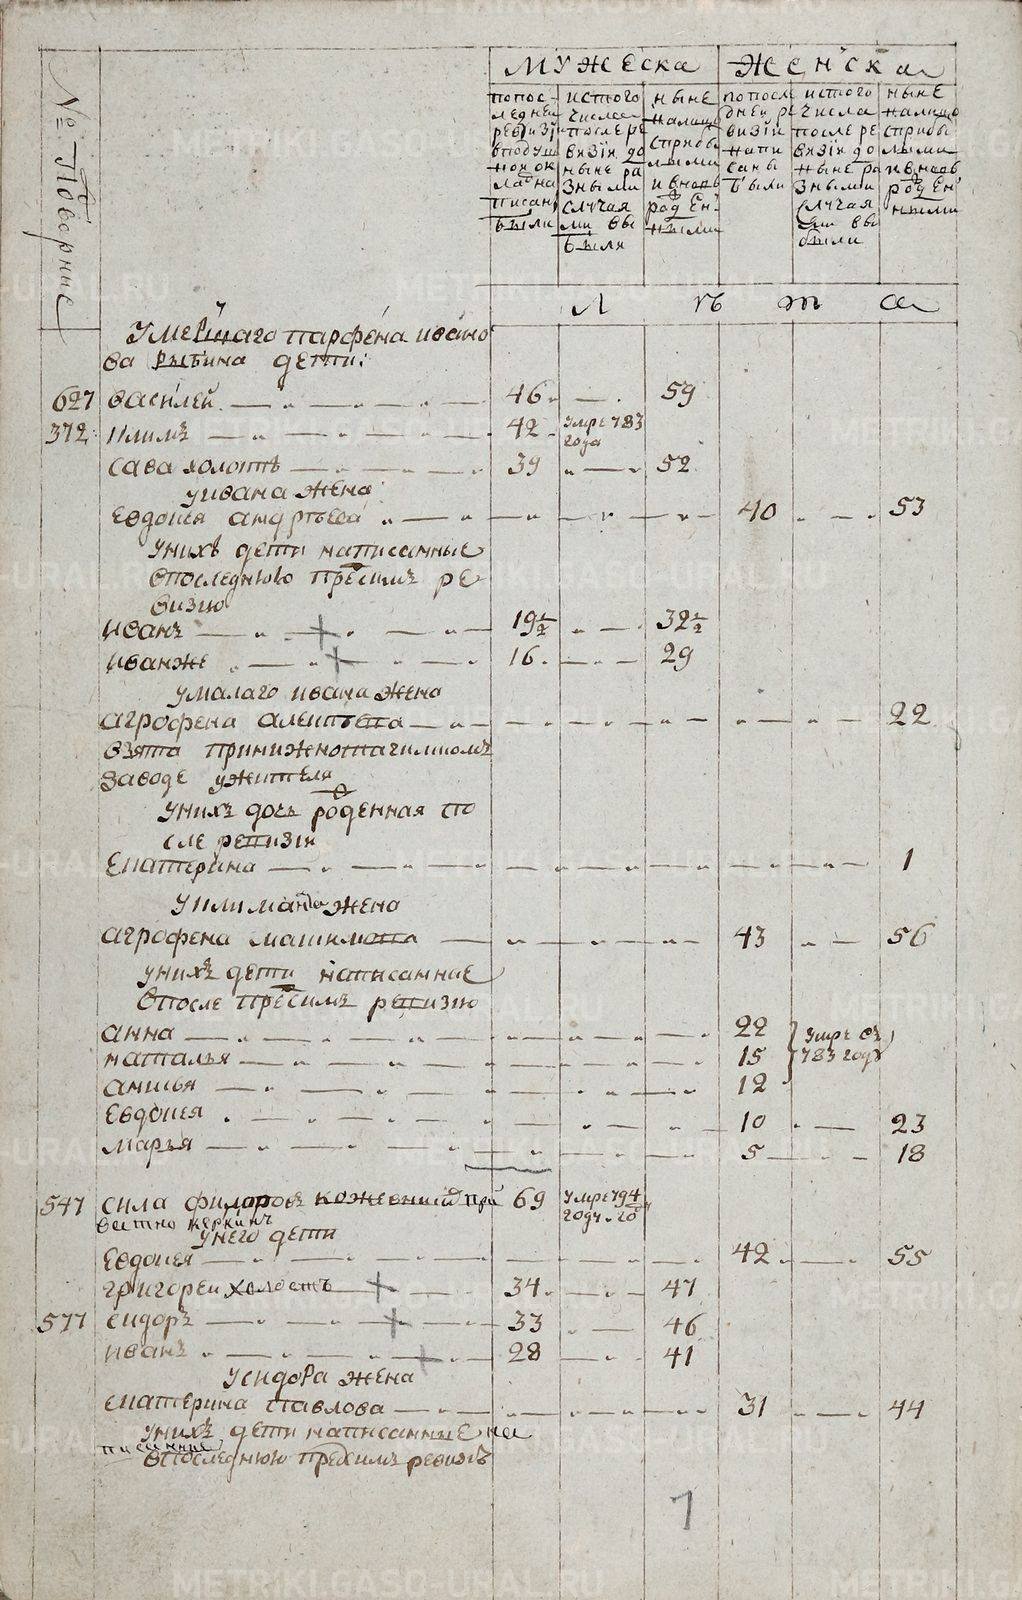 МУЖЕСКА ЖЕНСКА
№ Поворные
попос-
ледней
ревизiи
вподуш
ном ок
ладѣ на
писаны
были
истого
числа
послере
визiи до
ныне ра
зными
случая
ми вы
были
ныне
налицо
сприбы
лыми
и вновь
рожден-
ными
попосле
дней ре
визiи
напи
саны
были
истого
числа
после ре
визiи до
ныне ра
зными
случая
ми вы
были
ныне
налицо
сприбы
лыми
и вновь
рожден
ными
Л ѣ т а
Умершаго парфена ивано
ва рыбина дети:
627 василей 46 59
372 климъ 42 умре 783
года
сава холостъ 39 52
уивана жена
Евдокея 40 53
унихъ дети написанные
впоследнюю пресимъ ре-
визию
иванъ 19½ 32½
иванже 16 29
умалаго ивана жена
агрофена 22
взята принижнотагилкомъ
заводе ужителя
унихъ дочь рожденная по
сле ревизiи
Екатерина 1
уклима жена
агрофена 43 56
унихъ дети написанние
впосле пресимъ ревизию
анна 22 умре въ
наталья 15 783 году
анисья 12
Евдокея 10 23
марья 5 18
547 сила федоровъ кожевниковъ при 69 умре 794
году
унего дети
Евдокея 42 55
григореи холостъ 34 47
577 сидоръ 33 46
иванъ 28 41
усидора жена
екатерина павлова 31 44
унихъ дети написанные на
писанние
впоследнюю пресимъ ревизiю
7
METRIKI.GASO-URAL.RU